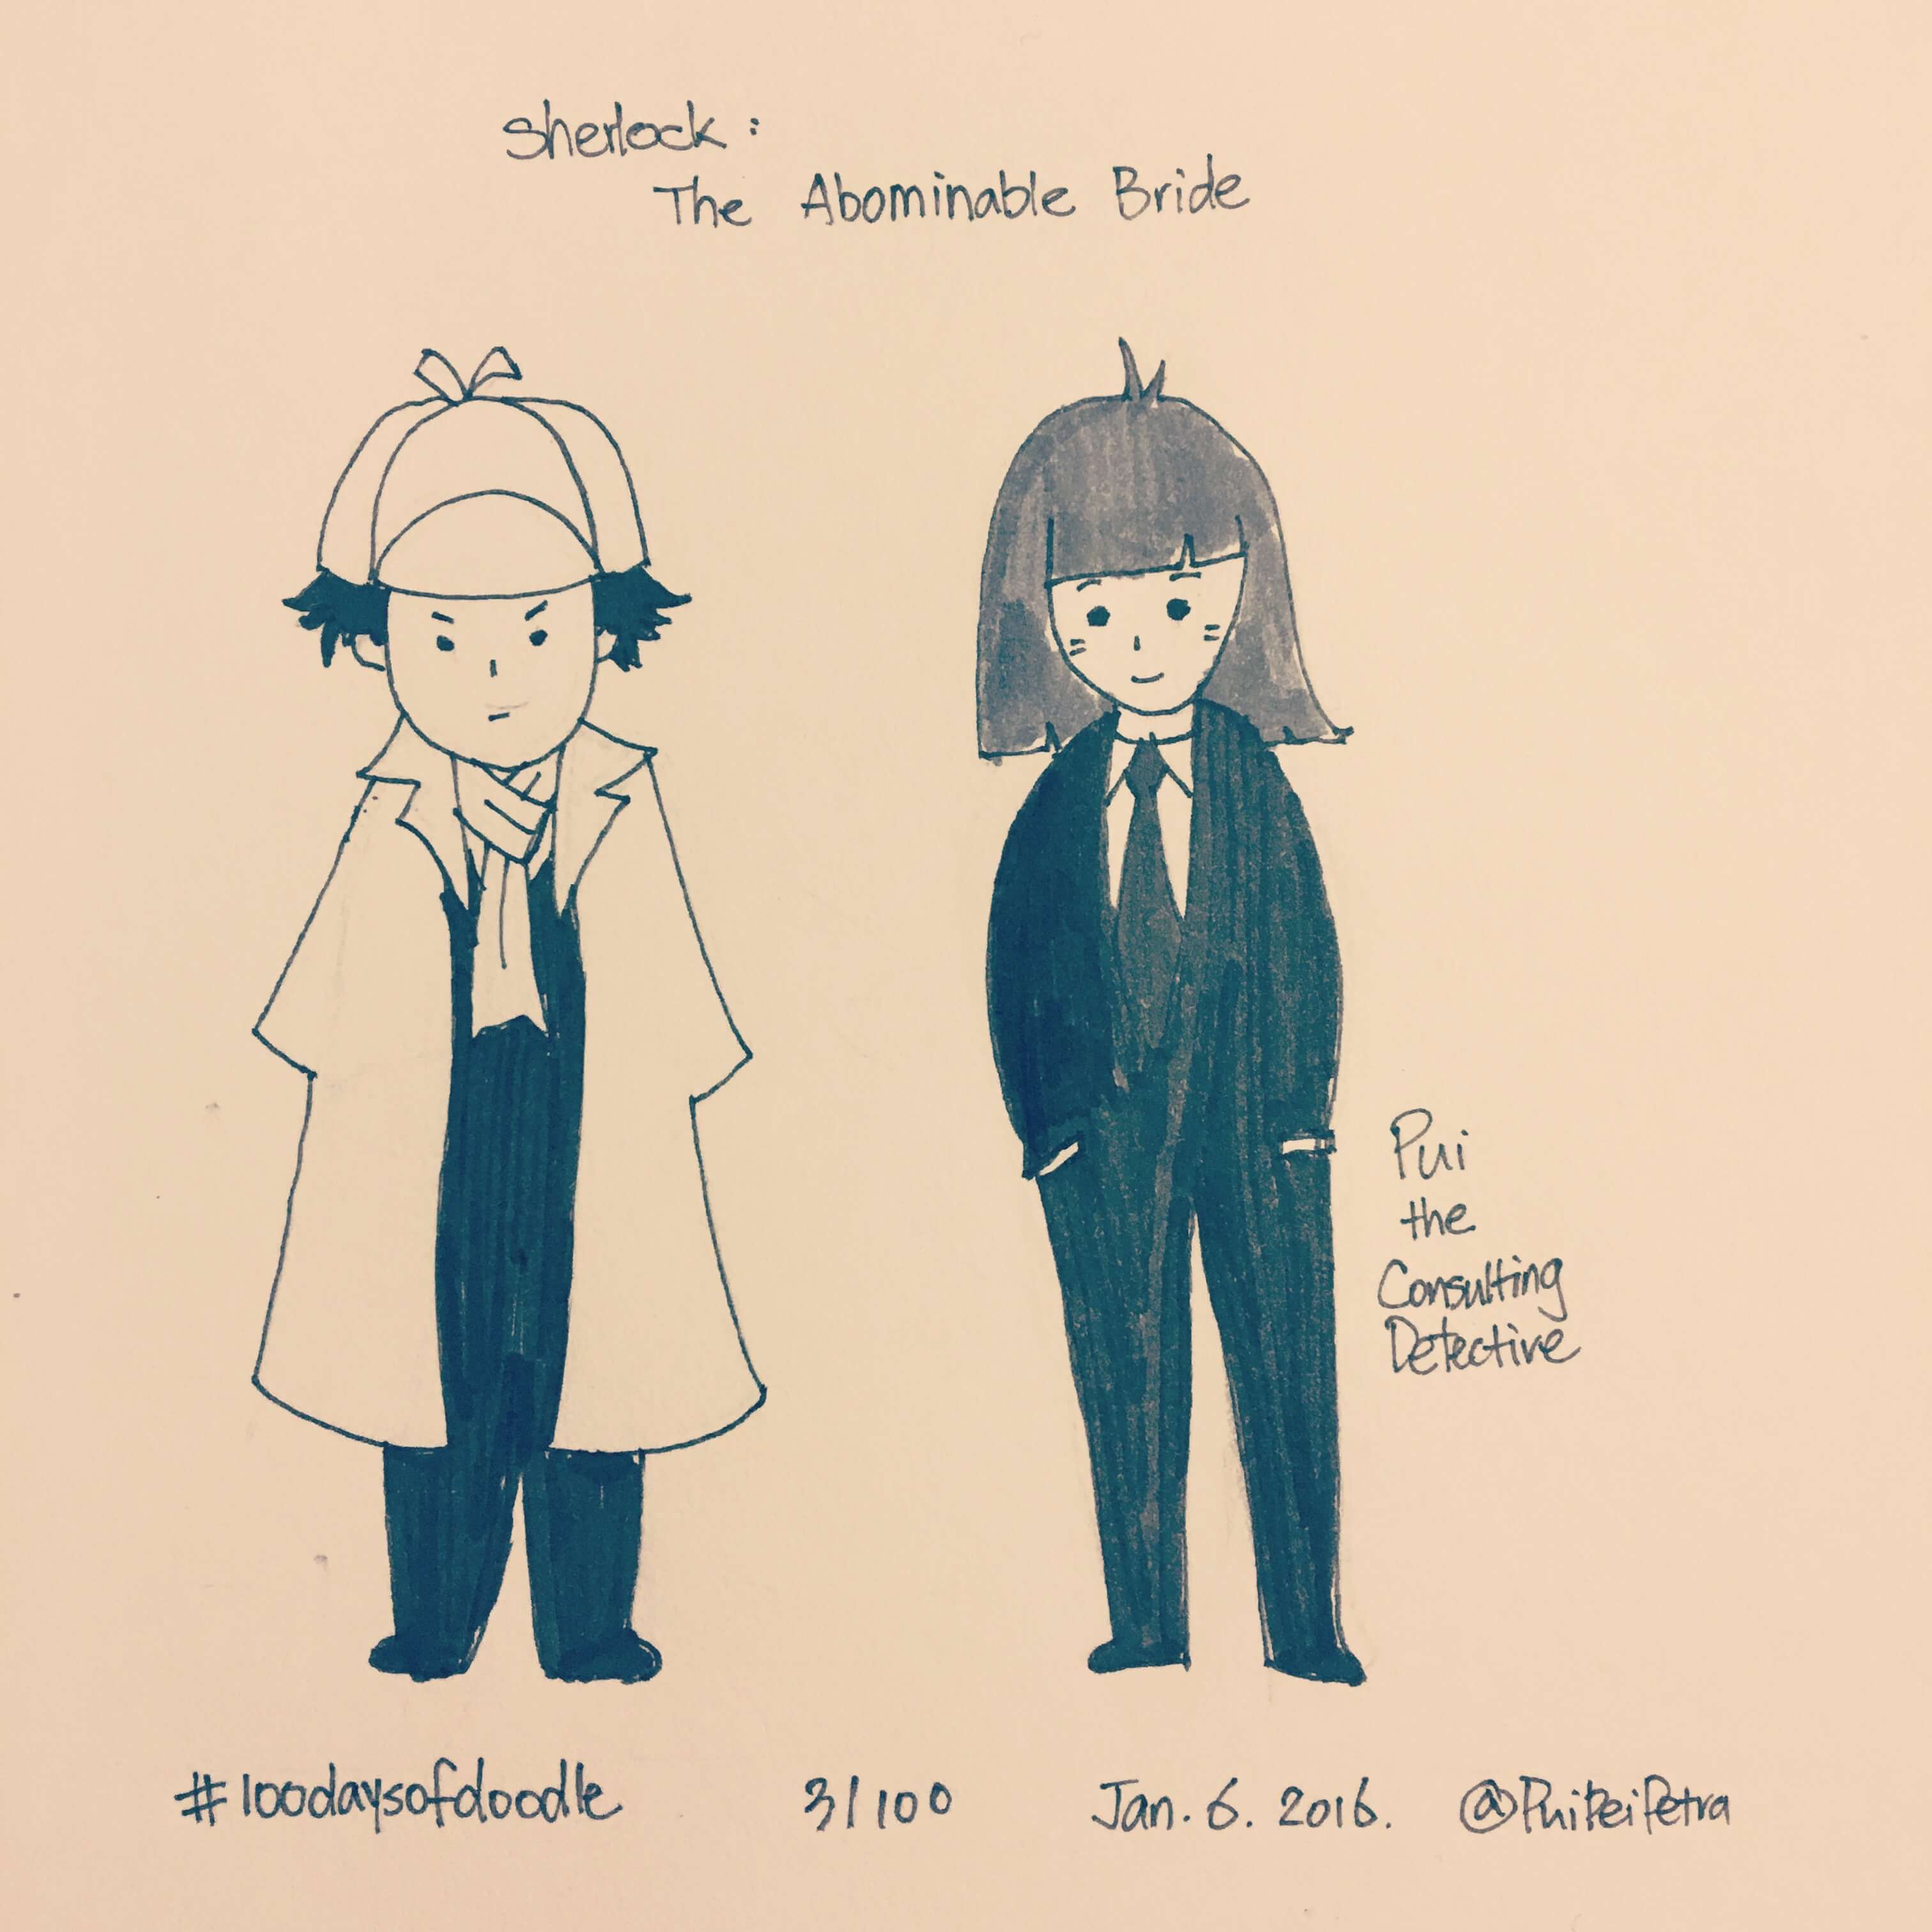 Sherlock :
The Abominable Bride
Pui
the
Consulting
Detective
#100daysofdoodle 3/100 Jan. 6. 2016. @PuiPeiPetra